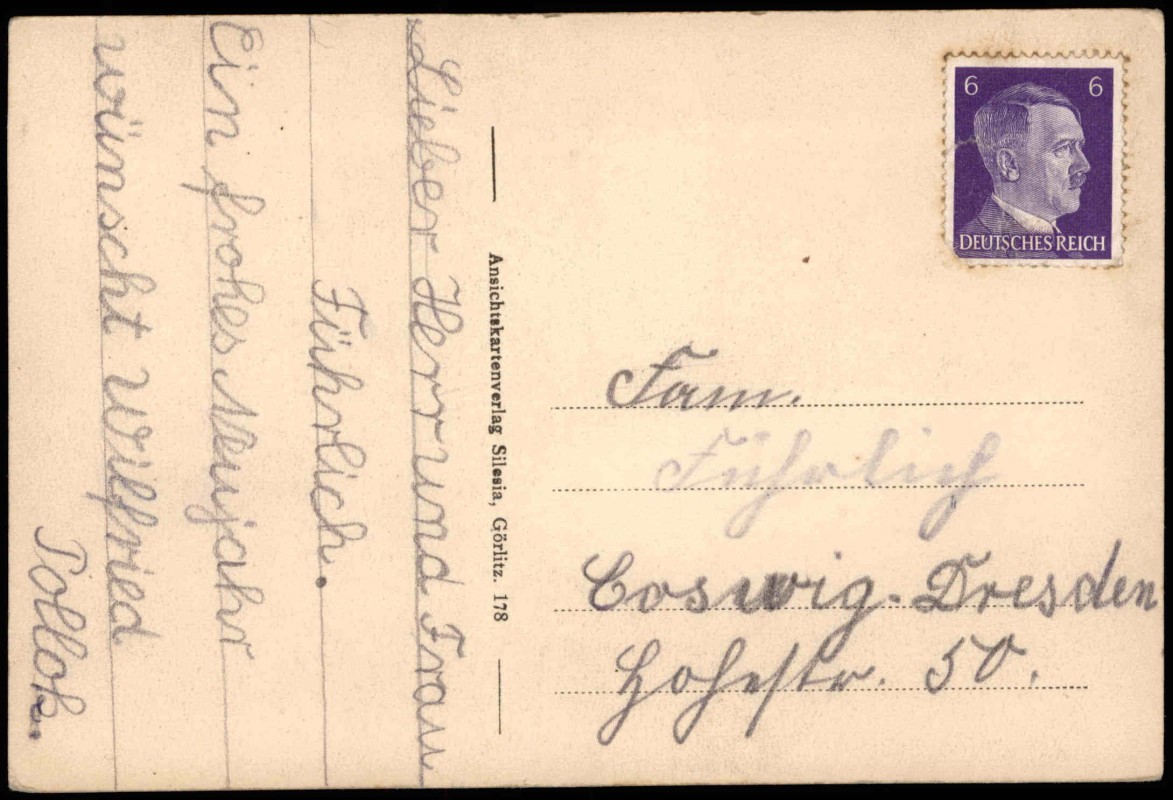 Lieber Herr und Frau
Führlich.
Ein frohes Neujahr
wünscht Wilfried
Pollok.
Ansichtskartenverlag Silesia, Görlitz. 178
6 6
DEUTSCHES REICH
Fam.
Führlich
Coswig-Dresden
Hohestr. 50.